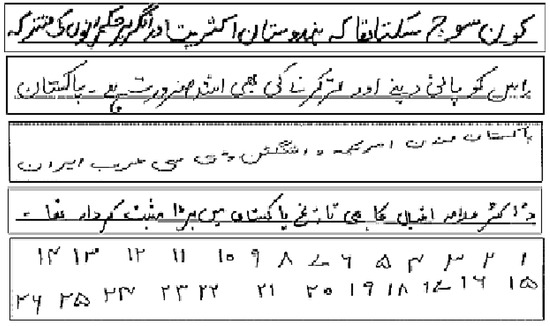 کون سوچ سکتا تھا کہ ہندوستان اکثریت اور انگریز حکمرانوں کی مشترکہ
اس کو پانی دینے اور تر کرنے کی بھی اشد ضرورت ہے ۔ پاکستان
پاکستان لندن امریکہ واشنگٹن ڈی سی عرب ایران
ڈاکٹر علامہ اقبال کا بھی تاریخ پاکستان میں بڑا مثبت کردار تھا ۔
۱ ۲ ۳ ۴ ۵ ۶ ۷ ۸ ۹ ۱۰ ۱۱ ۱۲ ۱۳ ۱۴
۱۵ ۱۶ ۱۷ ۱۸ ۱۹ ۲۰ ۲۱ ۲۲ ۲۳ ۲۴ ۲۵ ۲۶